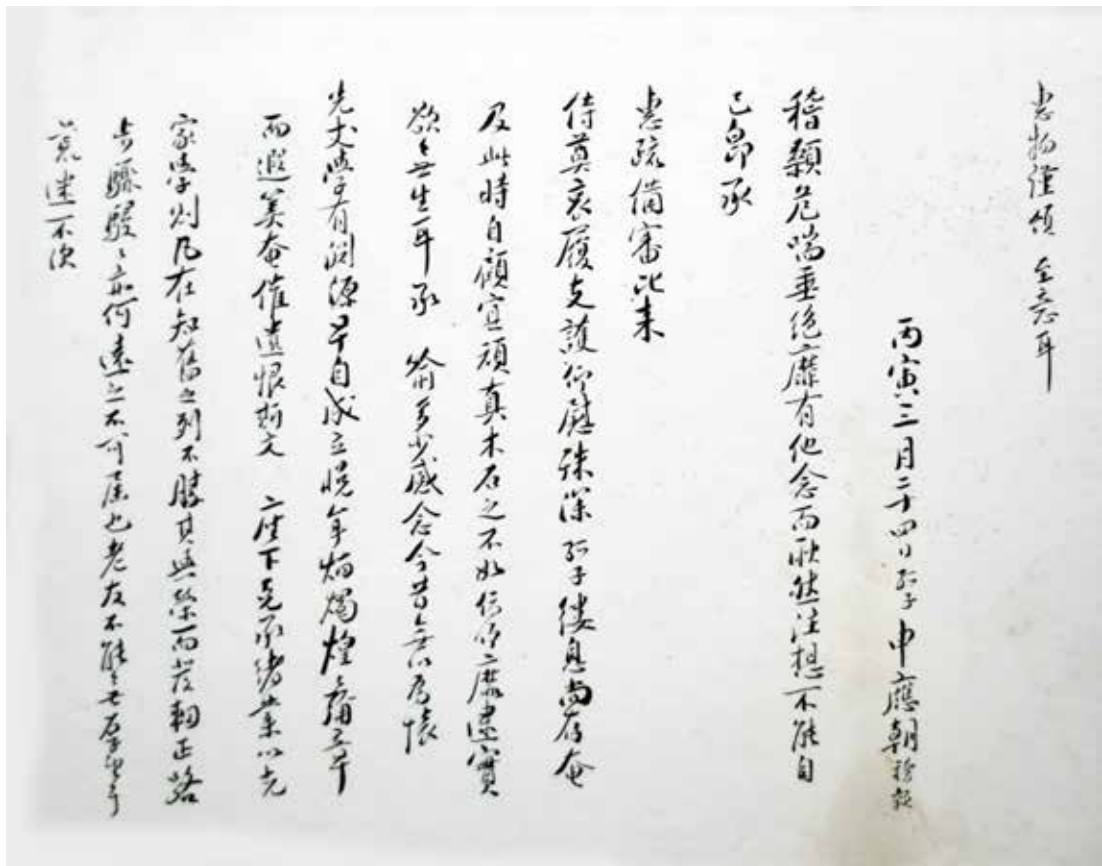 惠物謹領 至意耳
丙寅三月二十四日孤子 申應朝 稽顙
稽顙危喘垂絶靡有他念而耿然注想不能自
已卽承
惠疏備審比來
侍奠哀履支護仰慰殊深孤子縷息尙存奄
及此時自顧冥頑眞木石之不如俯仰靡逮實
欲無生耳承 喩多少感念今昔無以爲懷
先丈學有淵源早自成立晩年炳燭煌
而遐筭奄催遺恨斯文 座下克承緖業以克
家學則凡在知舊之列不勝其與榮而發軔正路
步驟駸〻亦何遠之不可屆也老友不能無厚望
荒迷不次